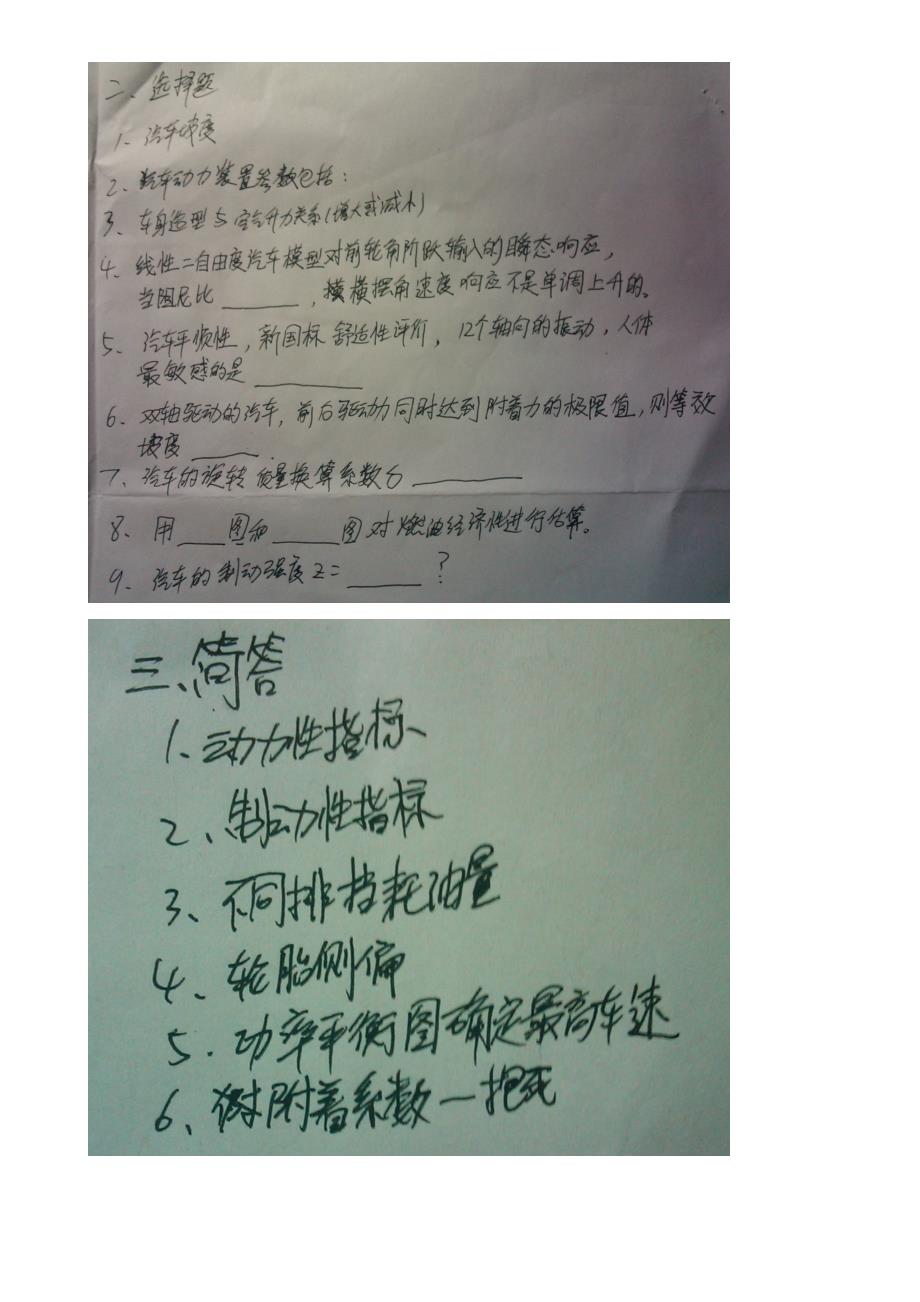 二、选择题
1、汽车坡度
2、汽车动力装置参数包括：
3、车身造型与空气升力关系(增大或减小)
4、线性二自由度汽车模型对前轮角阶跃输入的瞬态响应，
当阻尼比______，横摆角速度响应不是单调上升的。
5、汽车平顺性，新国标舒适性评价，12个轴向的振动，人体
最敏感的是________
6、双轴驱动的汽车，前后驱动力同时达到附着力的极限值，则等效
坡度_____.
7、汽车的旋转质量换算系数δ________
8、用____图和_____图对燃油经济性进行估算。
9、汽车的制动强度z=______?
三、简答
1、动力性指标
2、制动性指标
3、不同排挡耗油量
4、轮胎侧偏
5.功率平衡图确定最高车速
6、附着系数—抱死